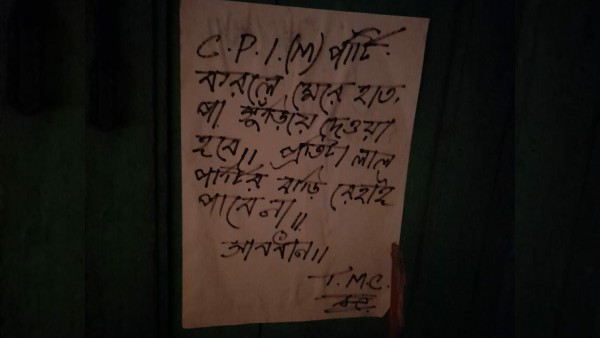 C.P.I.(M) পার্টি
করলে মেরে হাত,
পা গুঁড়িয়ে দেওয়া
হবে।। প্রতিটা লাল
পার্টির বাড়ি রেহাই
পাবে না।।
সাবধান।।
T.M.C.